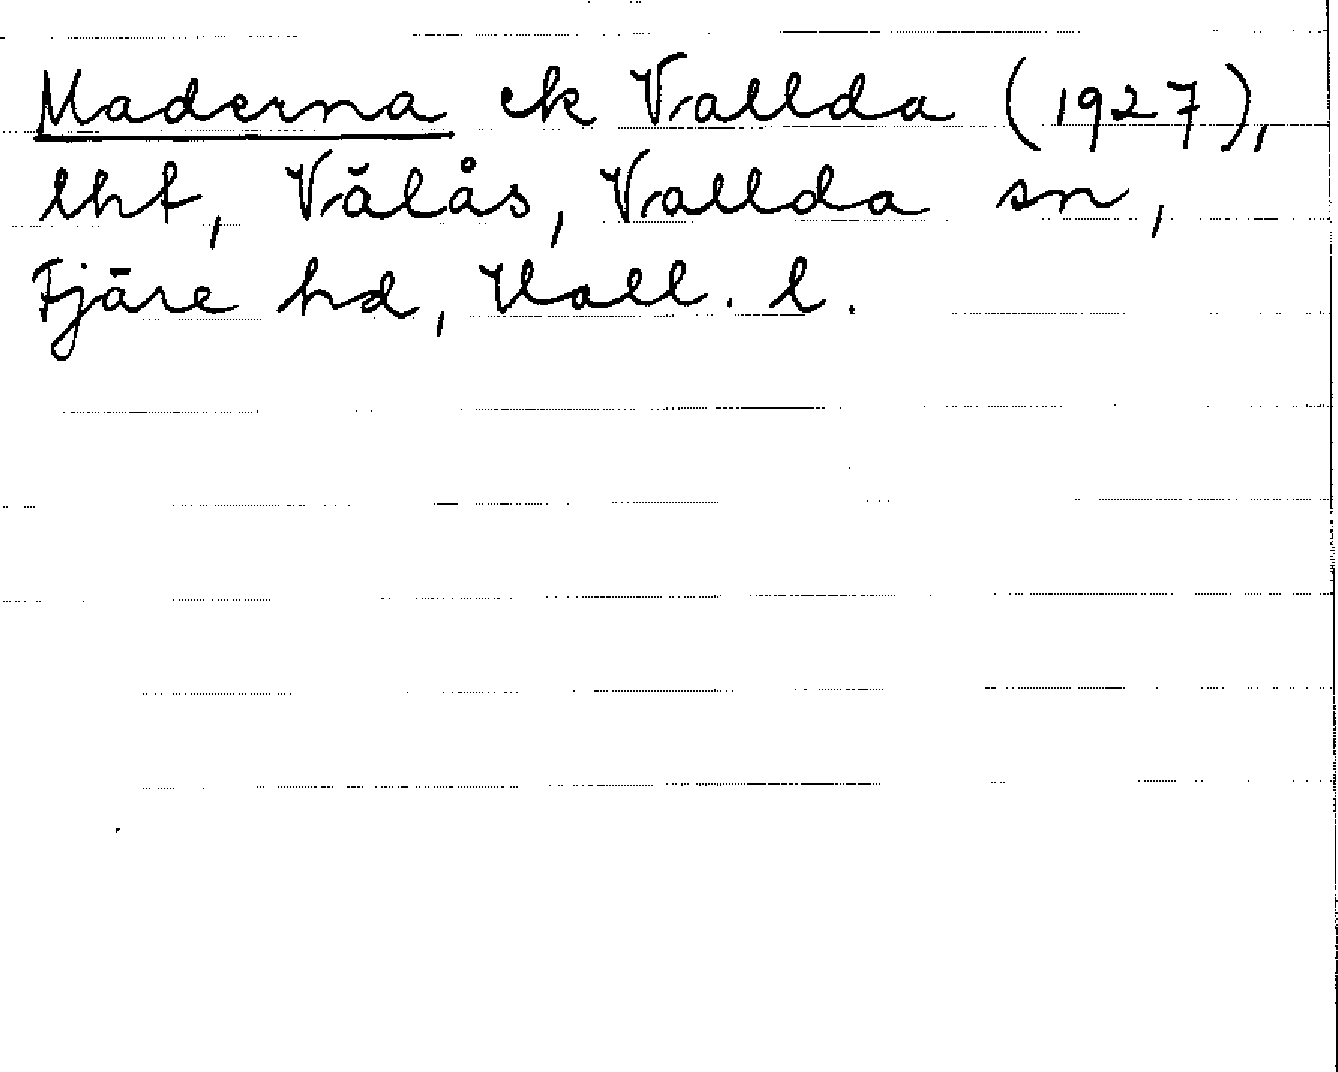 Maderna ek Vallda (1927),
lht, Välås, Vallda sn,
Fjäre hd, Hall. l.